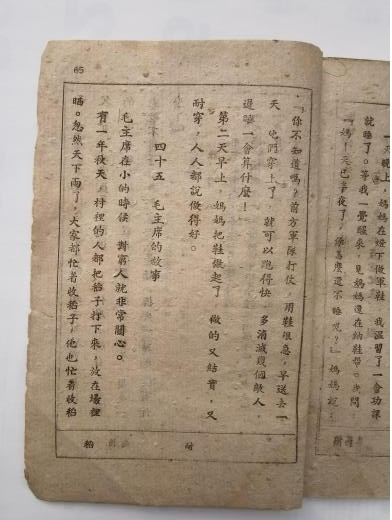 天晚上，媽媽在燈下做軍鞋，我溫習了一會功課
就睡了。等我一覺醒來，見媽媽還在納鞋幫。我問
「媽！天已半夜了，你怎麼還不睡呢？」媽媽說：
「你不知道嗎？前方軍隊打仗，用鞋很急，早送去一
天，他們穿上了，就可以跑得快，多消滅幾個敵人，
遲睡一會算什麼！」
第二天早上，媽媽把鞋做起了，做的又結實，又
耐穿，人人都說做得好。
四十五　毛主席的故事
毛主席在小的時候，對窮人就非常關心。
有一年秋天，村裡的人都把稻子打下來，放在場裡
晒。忽然天下雨了，大家都忙着收稻子，他也忙着收稻
耐
稻
65